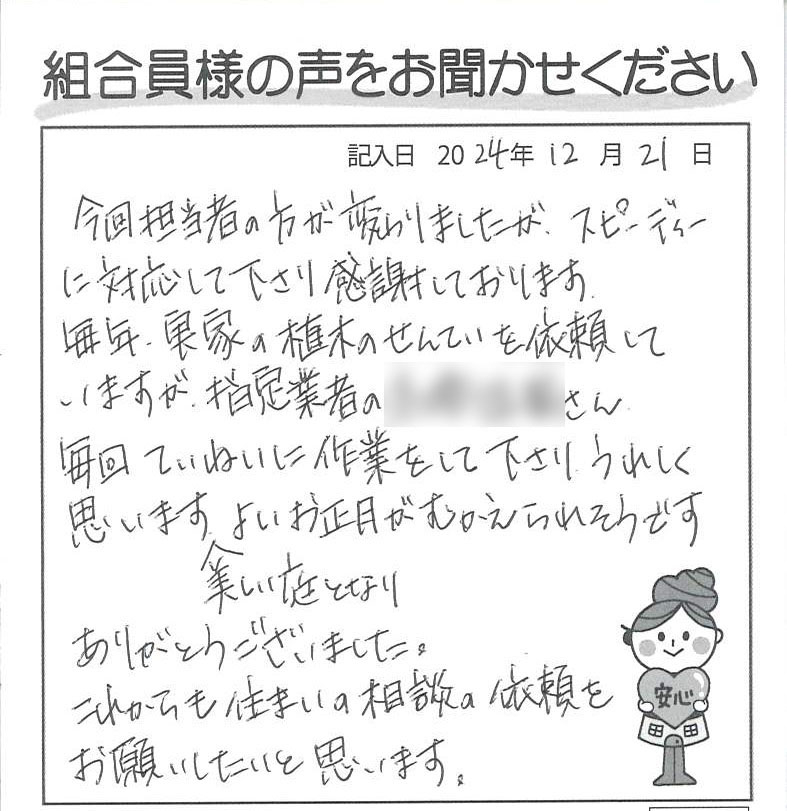 組合員様の声をお聞かせください
記入日 2024年 12 月 21 日
今回担当者の方が変わりましたが、スピーディー
に対応して下さり感謝しております。
毎年、実家の植木のせんていを依頼して
いますが、指定業者の さん
毎回ていねいに作業をして下さり、うれしく
思います。よいお正月がむかえられそうです
美しい庭となり
ありがとうございました。
これからも住まいの相談の依頼を
お願いしたいと思います。
安心